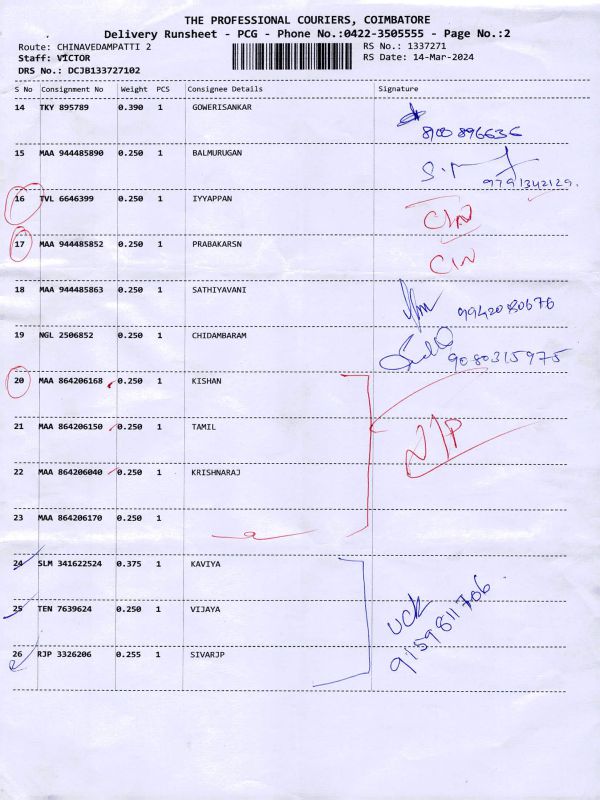 THE PROFESSIONAL COURIERS, COIMBATORE
Delivery Runsheet - PCG - Phone No.:0422-3505555 - Page No.:2
Route: CHINAVEDAMPATTI 2 RS No.: 1337271
Staff: VICTOR RS Date: 14-Mar-2024
DRS No.: DCJB133727102
S No Consignment No Weight PCS Consignee Details Signature
14 TKY 895789 0.390 1 GOWERISANKAR
8100896636
15 MAA 944485890 0.250 1 BALMURUGAN
9791342129.
16 TVL 6646399 0.250 1 IYYAPPAN CIN
17 MAA 944485852 0.250 1 PRABAKARSN CIN
18 MAA 944485863 0.250 1 SATHIYAVANI
19 NGL 2506852 0.250 1 CHIDAMBARAM
9080315975
20 MAA 864206168 0.250 1 KISHAN
21 MAA 864206150 0.250 1 TAMIL
22 MAA 864206040 0.250 1 KRISHNARAJ
23 MAA 864206170 0.250 1
24 SLM 341622524 0.375 1 KAVIYA
25 TEN 7639624 0.250 1 VIJAYA
26 RJP 3326206 0.255 1 SIVARJP
9159811706